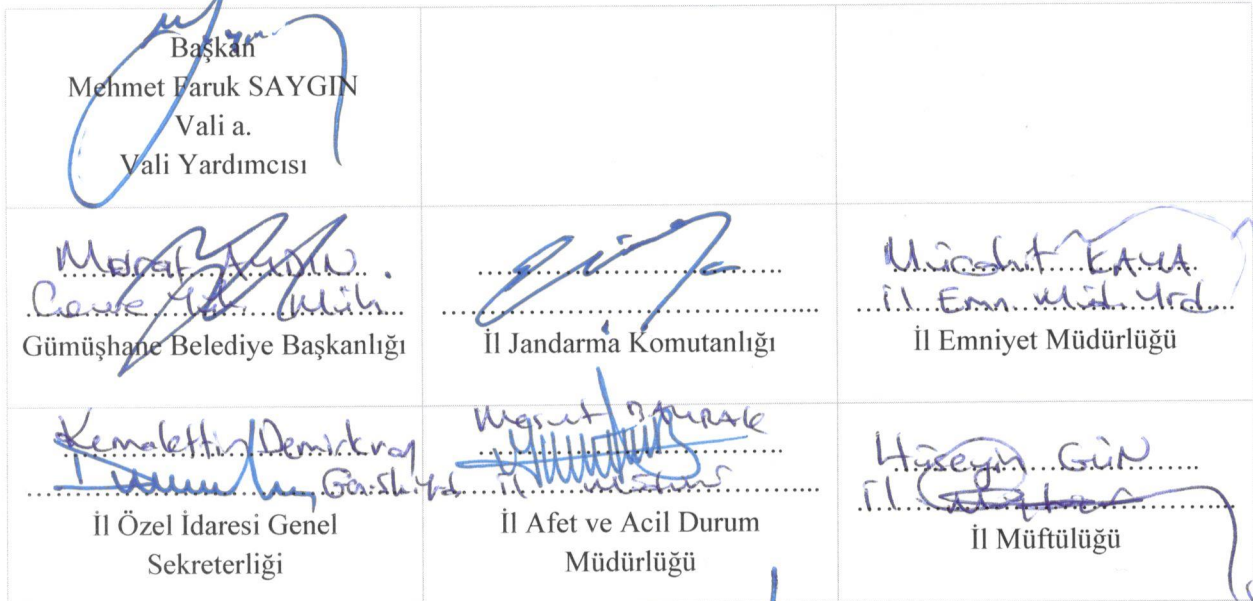 Başkan
Mehmet Faruk SAYGIN
Vali a.
Vali Yardımcısı
AYDIN
Çevre Müh.
Gümüşhane Belediye Başkanlığı
İl Jandarma Komutanlığı
KAYA
İl Emn. Müd. Yrd
İl Emniyet Müdürlüğü
Kemalettin
İl Özel İdaresi Genel
Sekreterliği
Mesut BAYRAK
İl Müdürü
İl Afet ve Acil Durum
Müdürlüğü
Hüseyin GÜN
İl
İl Müftülüğü